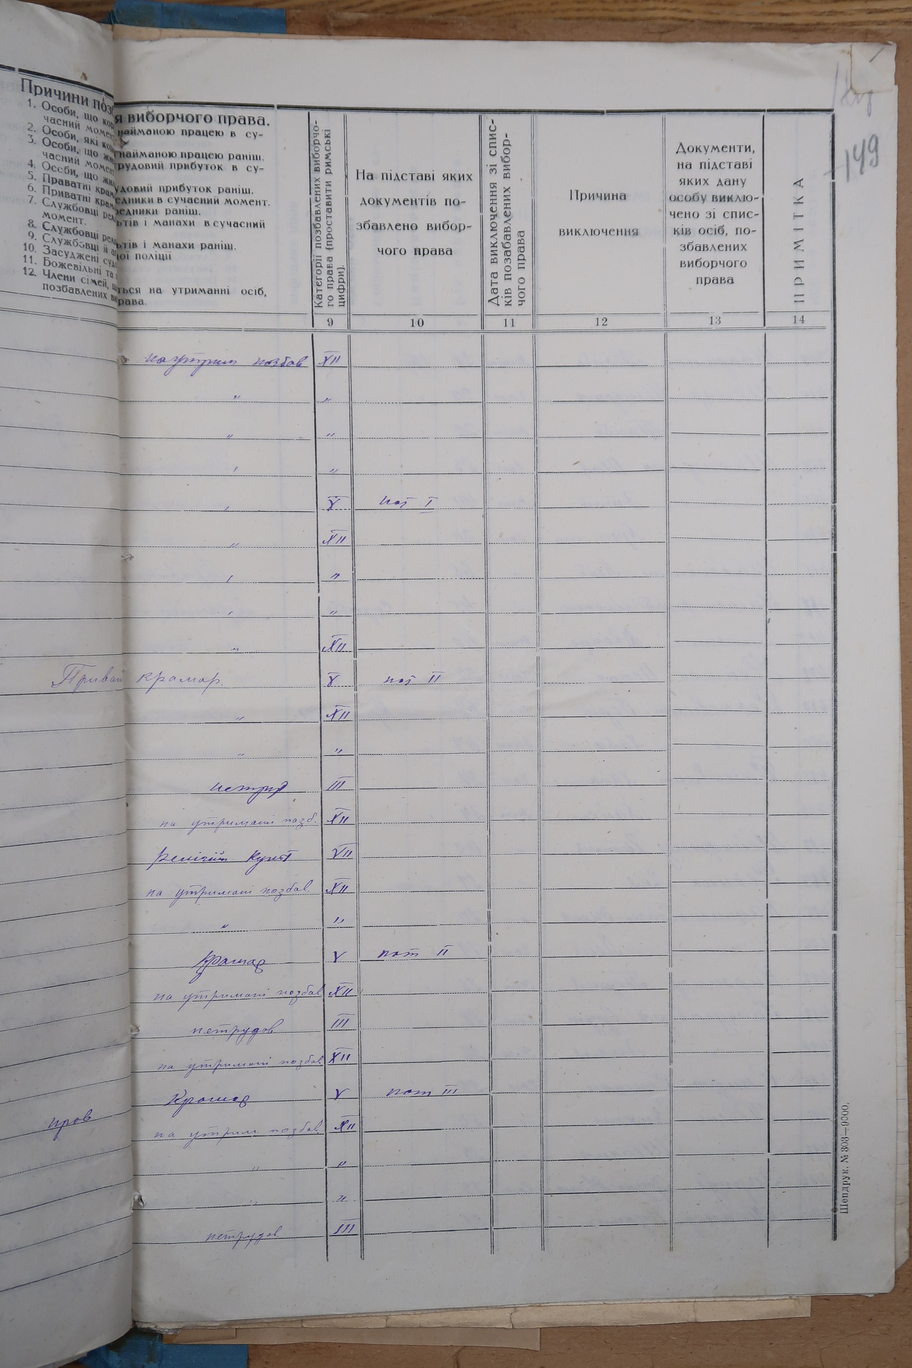 149
Причини поз
я виборчого права.
1. Особи, що
найманою працею в су-
часний момен
2. Особи, які
найманою працею раніш.
3. Особи, що
трудовий прибуток в су-
часний момен
4. Особи, що
удовий прибуток раніш.
5. Приватні крам
едники в сучасний момент.
6. Приватні крам
едники раніш.
7. Службовці рел
тів і манахи в сучасний
момент.
8. Службовці рел
тів і манахи раніш.
9. Службовці й
ої поліції
10. Засуджені су
11. Божевільні та
12. Члени сімей,
ться на утриманні осіб,
позбавлених
права.
Категорії позбавлених виборчо-
го права (проставити римські
цифри).
На підставі яких
документів по-
збавлено вибор-
чого права
Дата виключення зі спис-
ків позабавлених вибор-
чого права
Причина
виключення
Документи,
на підставі
яких дану
особу виклю-
чено зі спис-
ків осіб, по-
збавлених
виборчого
права
ПРИМІТКА
9 10 11 12 13 14
на утрим позбав XII
" "
" "
" "
" V пот I
" XII
" "
" "
" XII
Приват крамар V пот II
" XII
" "
нетруд III
на утримані позб. XII
Релігійн культ VII
на утримані позбав. XII
" "
Крамар V пот II
на утримані позбав XII
нетрудов III
на утримані позбав XII
Крамар V пот III
на утрим позбав XII
" "
" "
нетрудов III
Шепдрук. № 303—9500.